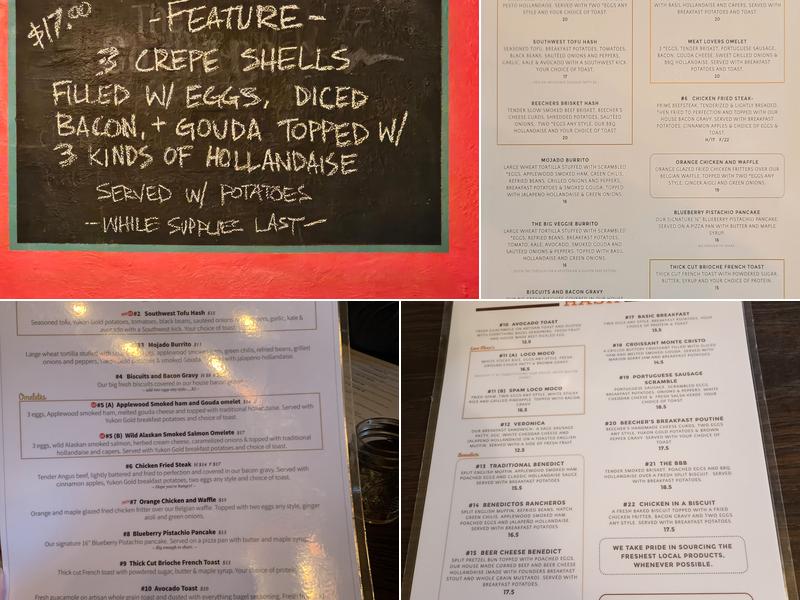 $17.00
-FEATURE-
3 CREPE SHELLS
FILLED W/ EGGS, DICED
BACON, + GOUDA TOPPED W/
3 KINDS OF HOLLANDAISE
SERVED W/ POTATOES
-WHILE SUPPLIES LAST-
PESTO HOLLANDAISE. SERVED WITH TWO *EGGS ANY
STYLE AND YOUR CHOICE OF TOAST.
20
SOUTHWEST TOFU HASH
SEASONED TOFU, BREAKFAST POTATOES, TOMATOES,
BLACK BEANS, SAUTÉED ONIONS AND PEPPERS,
GARLIC, KALE & AVOCADO WITH A SOUTHWEST KICK.
YOUR CHOICE OF TOAST.
17
BEECHERS BRISKET HASH
TENDER SLOW SMOKED BEEF BRISKET, BEECHER'S
CHEESE CURDS, SHREDDED POTATOES, SAUTÉED
ONIONS, TWO *EGGS ANY STYLE, OUR BBQ
HOLLANDAISE AND YOUR CHOICE OF TOAST
20
MOJADO BURRITO
LARGE WHEAT TORTILLA STUFFED WITH SCRAMBLED
*EGGS, APPLEWOOD SMOKED HAM, GREEN CHILIS,
REFRIED BEANS, GRILLED ONIONS AND PEPPERS,
BREAKFAST POTATOES & SMOKED GOUDA, TOPPED
WITH JALAPENO HOLLANDAISE & GREEN ONIONS.
18
THE BIG VEGGIE BURRITO
LARGE WHEAT TORTILLA STUFFED WITH SCRAMBLED
*EGGS, REFRIED BEANS, BREAKFAST POTATOES,
TOMATO, KALE, AVOCADO, SMOKED GOUDA AND
SAUTÉED ONIONS & PEPPERS. TOPPED WITH BASIL
HOLLANDAISE AND GREEN ONIONS.
16
BISCUITS AND BACON GRAVY
WITH BASIL HOLLANDAISE AND CAPERS. SERVED WITH
BREAKFAST POTATOES AND TOAST.
20
MEAT LOVERS OMELET
3 *EGGS, TENDER BRISKET, PORTUGUESE SAUSAGE,
BACON, GOUDA CHEESE, SWEET GRILLED ONIONS &
BBQ HOLLANDAISE. SERVED WITH BREAKFAST
POTATOES AND TOAST.
20
#6 CHICKEN FRIED STEAK-
PRIME BEEFSTEAK, TENDERIZED & LIGHTLY BREADED,
THEN FRIED TO PERFECTION AND TOPPED WITH OUR
HOUSE BACON GRAVY. SERVED WITH BREAKFAST
POTATOES, CINNAMON APPLES & CHOICE OF EGGS &
TOAST.
H/17 F/22
ORANGE CHICKEN AND WAFFLE
ORANGE GLAZED FRIED CHICKEN FRITTERS OVER OUR
BELGIAN WAFFLE, TOPPED WITH TWO *EGGS ANY
STYLE, GINGER AIGLI AND GREEN ONIONS.
19
BLUEBERRY PISTACHIO PANCAKE
OUR SIGNATURE 16" BLUEBERRY PISTACHIO PANCAKE.
SERVED ON A PIZZA PAN WITH BUTTER AND MAPLE
SYRUP.
16
THICK CUT BRIOCHE FRENCH TOAST
THICK CUT FRENCH TOAST WITH POWDERED SUGAR,
BUTTER, SYRUP AND YOUR CHOICE OF PROTEIN.
15
#2 Southwest Tofu Hash
Seasoned tofu, Yukon Gold potatoes, tomatoes, black beans, sautéed onions
avocado with a Southwest kick. Your choice of toast.
#3 Mojado Burrito $17
Large wheat tortilla stuffed with
#4 Biscuits and Bacon Gravy
Our big fresh biscuits covered in our house bacon gravy
Omelets
#5 (A) Applewood Smoked ham and Gouda omelet
3 eggs, Applewood smoked ham, melted gouda cheese and topped with traditional hollandaise. Served with
Yukon Gold breakfast potatoes and choice of toast.
#5 (B) Wild Alaskan Smoked Salmon Omelette $17
3 eggs, wild Alaskan smoked salmon, herbed cream cheese, caramelized onions & topped with traditional
hollandaise and capers. Served with Yukon Gold breakfast potatoes and choice of toast.
#6 Chicken Fried Steak H $14 F $17
Tender Angus beef, lightly battered and fried to perfection and covered in our bacon gravy. Served with
cinnamon apples, Yukon Gold breakfast potatoes, two eggs any style and choice of toast.
#7 Orange Chicken and Waffle $15
Orange and maple glazed fried chicken fritter over our Belgian waffle. Topped with two eggs any style, ginger
aioli and green onions.
#8 Blueberry Pistachio Pancake $15
Our signature 16" Blueberry Pistachio pancake. Served on a pizza pan with butter and maple syrup.
#9 Thick Cut Brioche French Toast $13
Thick cut French toast with powdered sugar, butter & maple syrup. Your choice of protein.
#10 Avocado Toast
Fresh guacamole on artisan whole grain toast and dusted with everything bagel seasoning.
HASH
#10 AVOCADO TOAST
#11 (A) LOCO MOCO
16.5
#11 (B) SPAM LOCO MOCO
16.5
#12 VERONICA
12.5
Benedicts
#13 TRADITIONAL BENEDICT
SPLIT ENGLISH MUFFIN, APPLEWOOD SMOKED HAM,
POACHED EGGS AND CLASSIC HOLLANDAISE SAUCE.
SERVED WITH BREAKFAST POTATOES.
15.5
#14 BENEDICTOS RANCHEROS
SPLIT ENGLISH MUFFIN, REFRIED BEANS, HATCH
GREEN CHILIS, APPLEWOOD SMOKED HAM,
POACHED EGGS AND JALAPEÑO HOLLANDAISE.
SERVED WITH BREAKFAST POTATOES.
16.5
#15 BEER CHEESE BENEDICT
SPLIT PRETZEL BUN TOPPED WITH POACHED EGGS,
OUR HOUSE MADE CORNED BEEF AND BEER CHEESE
HOLLANDAISE (MADE WITH FOUNDERS BREAKFAST
STOUT AND WHOLE GRAIN MUSTARD). SERVED WITH
BREAKFAST POTATOES.
17.5
#17 BASIC BREAKFAST
13.5
#18 CROISSANT MONTE CRISTO
14.5
#19 PORTUGUESE SAUSAGE
SCRAMBLE
18.5
#20 BEECHER'S BREAKFAST POUTINE
BEECHER'S HANDMADE CHEESE CURDS, TWO EGGS
ANY STYLE, YUKON GOLD POTATOES & BROWN
PEPPER GRAVY. SERVED WITH YOUR CHOICE OF
TOAST.
17.5
#21 THE BBB
TENDER SMOKED BRISKET, POACHED EGGS AND BBQ
HOLLANDAISE ON A FRESH BISCUIT. SERVED WITH
BREAKFAST POTATOES.
18.5
#22 CHICKEN IN A BISCUIT
A FRESH BAKED BISCUIT TOPPED WITH A FRIED
CHICKEN FRITTER, BACON GRAVY AND TWO EGGS
ANY STYLE. SERVED WITH BREAKFAST POTATOES.
17.5
WE TAKE PRIDE IN SOURCING THE
FRESHEST LOCAL PRODUCTS,
WHENEVER POSSIBLE.